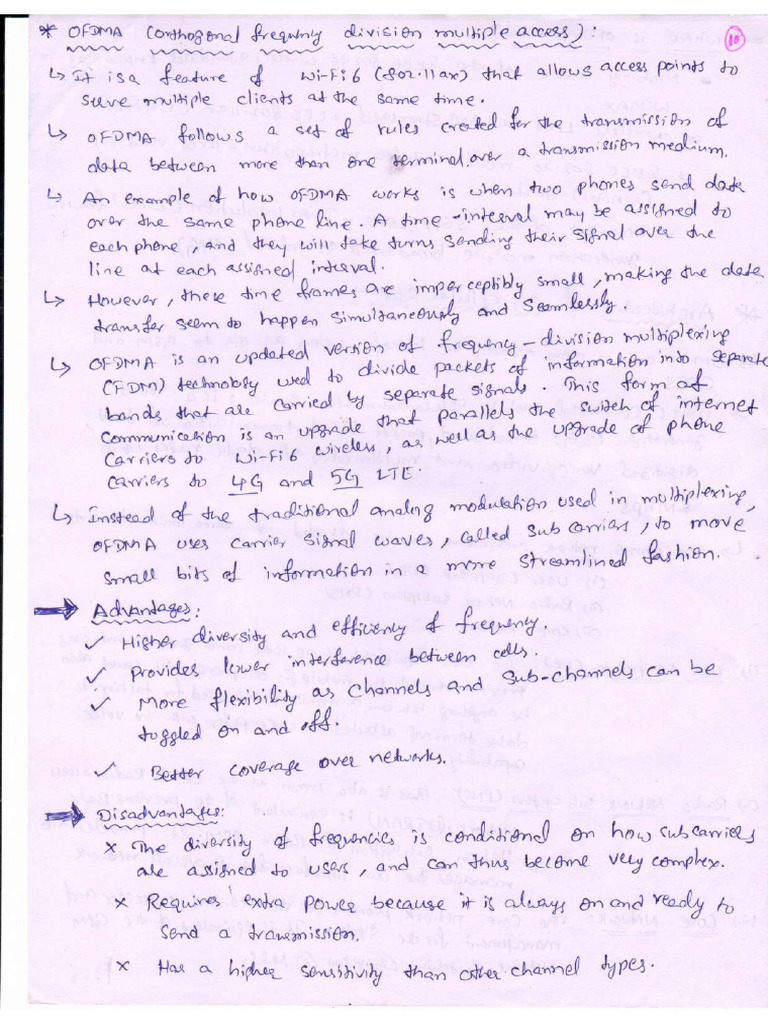 * OFDMA (orthogonal frequency division multiple access):
10
↳ It is a feature of Wi-Fi 6 (802.11ax) that allows access points to
serve multiple clients at the same time.
↳ OFDMA follows a set of rules created for the transmission of
data between more than one terminal over a transmission medium.
↳ An example of how OFDMA works is when two phones send data
over the same phone line. A time-interval may be assigned to
each phone, and they will take turns sending their signal over the
line at each assigned interval.
↳ However, these time frames are imperceptibly small, making the data
transfer seem to happen simultaneously and seamlessly
↳ OFDMA is an updated version of frequency-division multiplexing
(FDM) technology used to divide packets of information into separate
bands that are carried by separate signals. This form of
communication is an upgrade that parallels the switch of internet
carriers to Wi-Fi 6 wireless, as well as the upgrade of phone
carriers to 4G and 5G LTE.
↳ Instead of the traditional analog modulation used in multiplexing,
OFDMA uses carrier signal waves, called subcarriers, to move
small bits of information in a more streamlined fashion.
→ Advantages:
✓ Higher diversity and efficiency of frequency.
✓ Provides lower interference between cells.
✓ More flexibility as channels and sub-channels can be
toggled on and off.
✓ Better coverage over networks.
→ Disadvantages:
x The diversity of frequencies is conditional on how subcarriers
are assigned to users, and can thus become very complex.
x Requires extra power because it is always on and ready to
send a transmission.
x Has a higher sensitivity than other channel types.